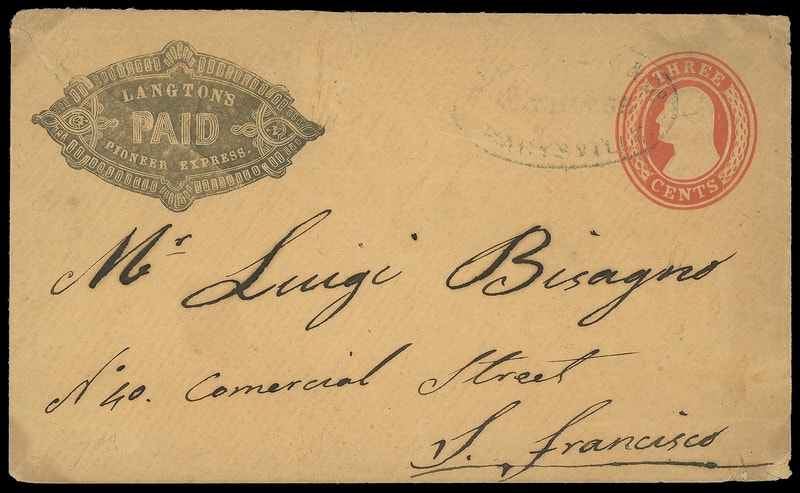 LANGTON'S
PAID
PIONEER EXPRESS.
MARYSVILLE
THREE
CENTS
Mr Luigi Bisagno
N 40. Comercial Street
S. Francisco